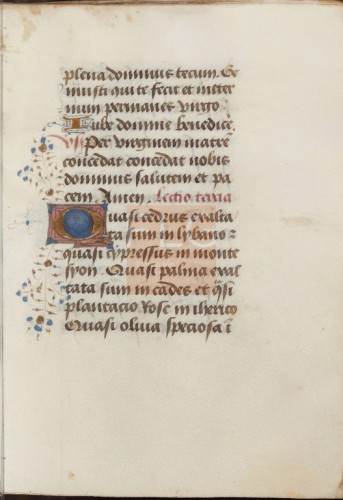 plena dominus tecum. Ge
nuisti qui te fecit et in eter
num permanes virgo.
Iube domne benedicé.
Per virginem matré
concedat concedat nobis
dominus salutem et pa
cem. Amen. Lectio tercia
Quasi cedrus exalta
ta sum in lybano z
quasi cypressus in monte
syon. Quasi palma exal
tata sum in cades et q̃si
plantacio Rose in iherico
Quasi oliva speciosa ĩ